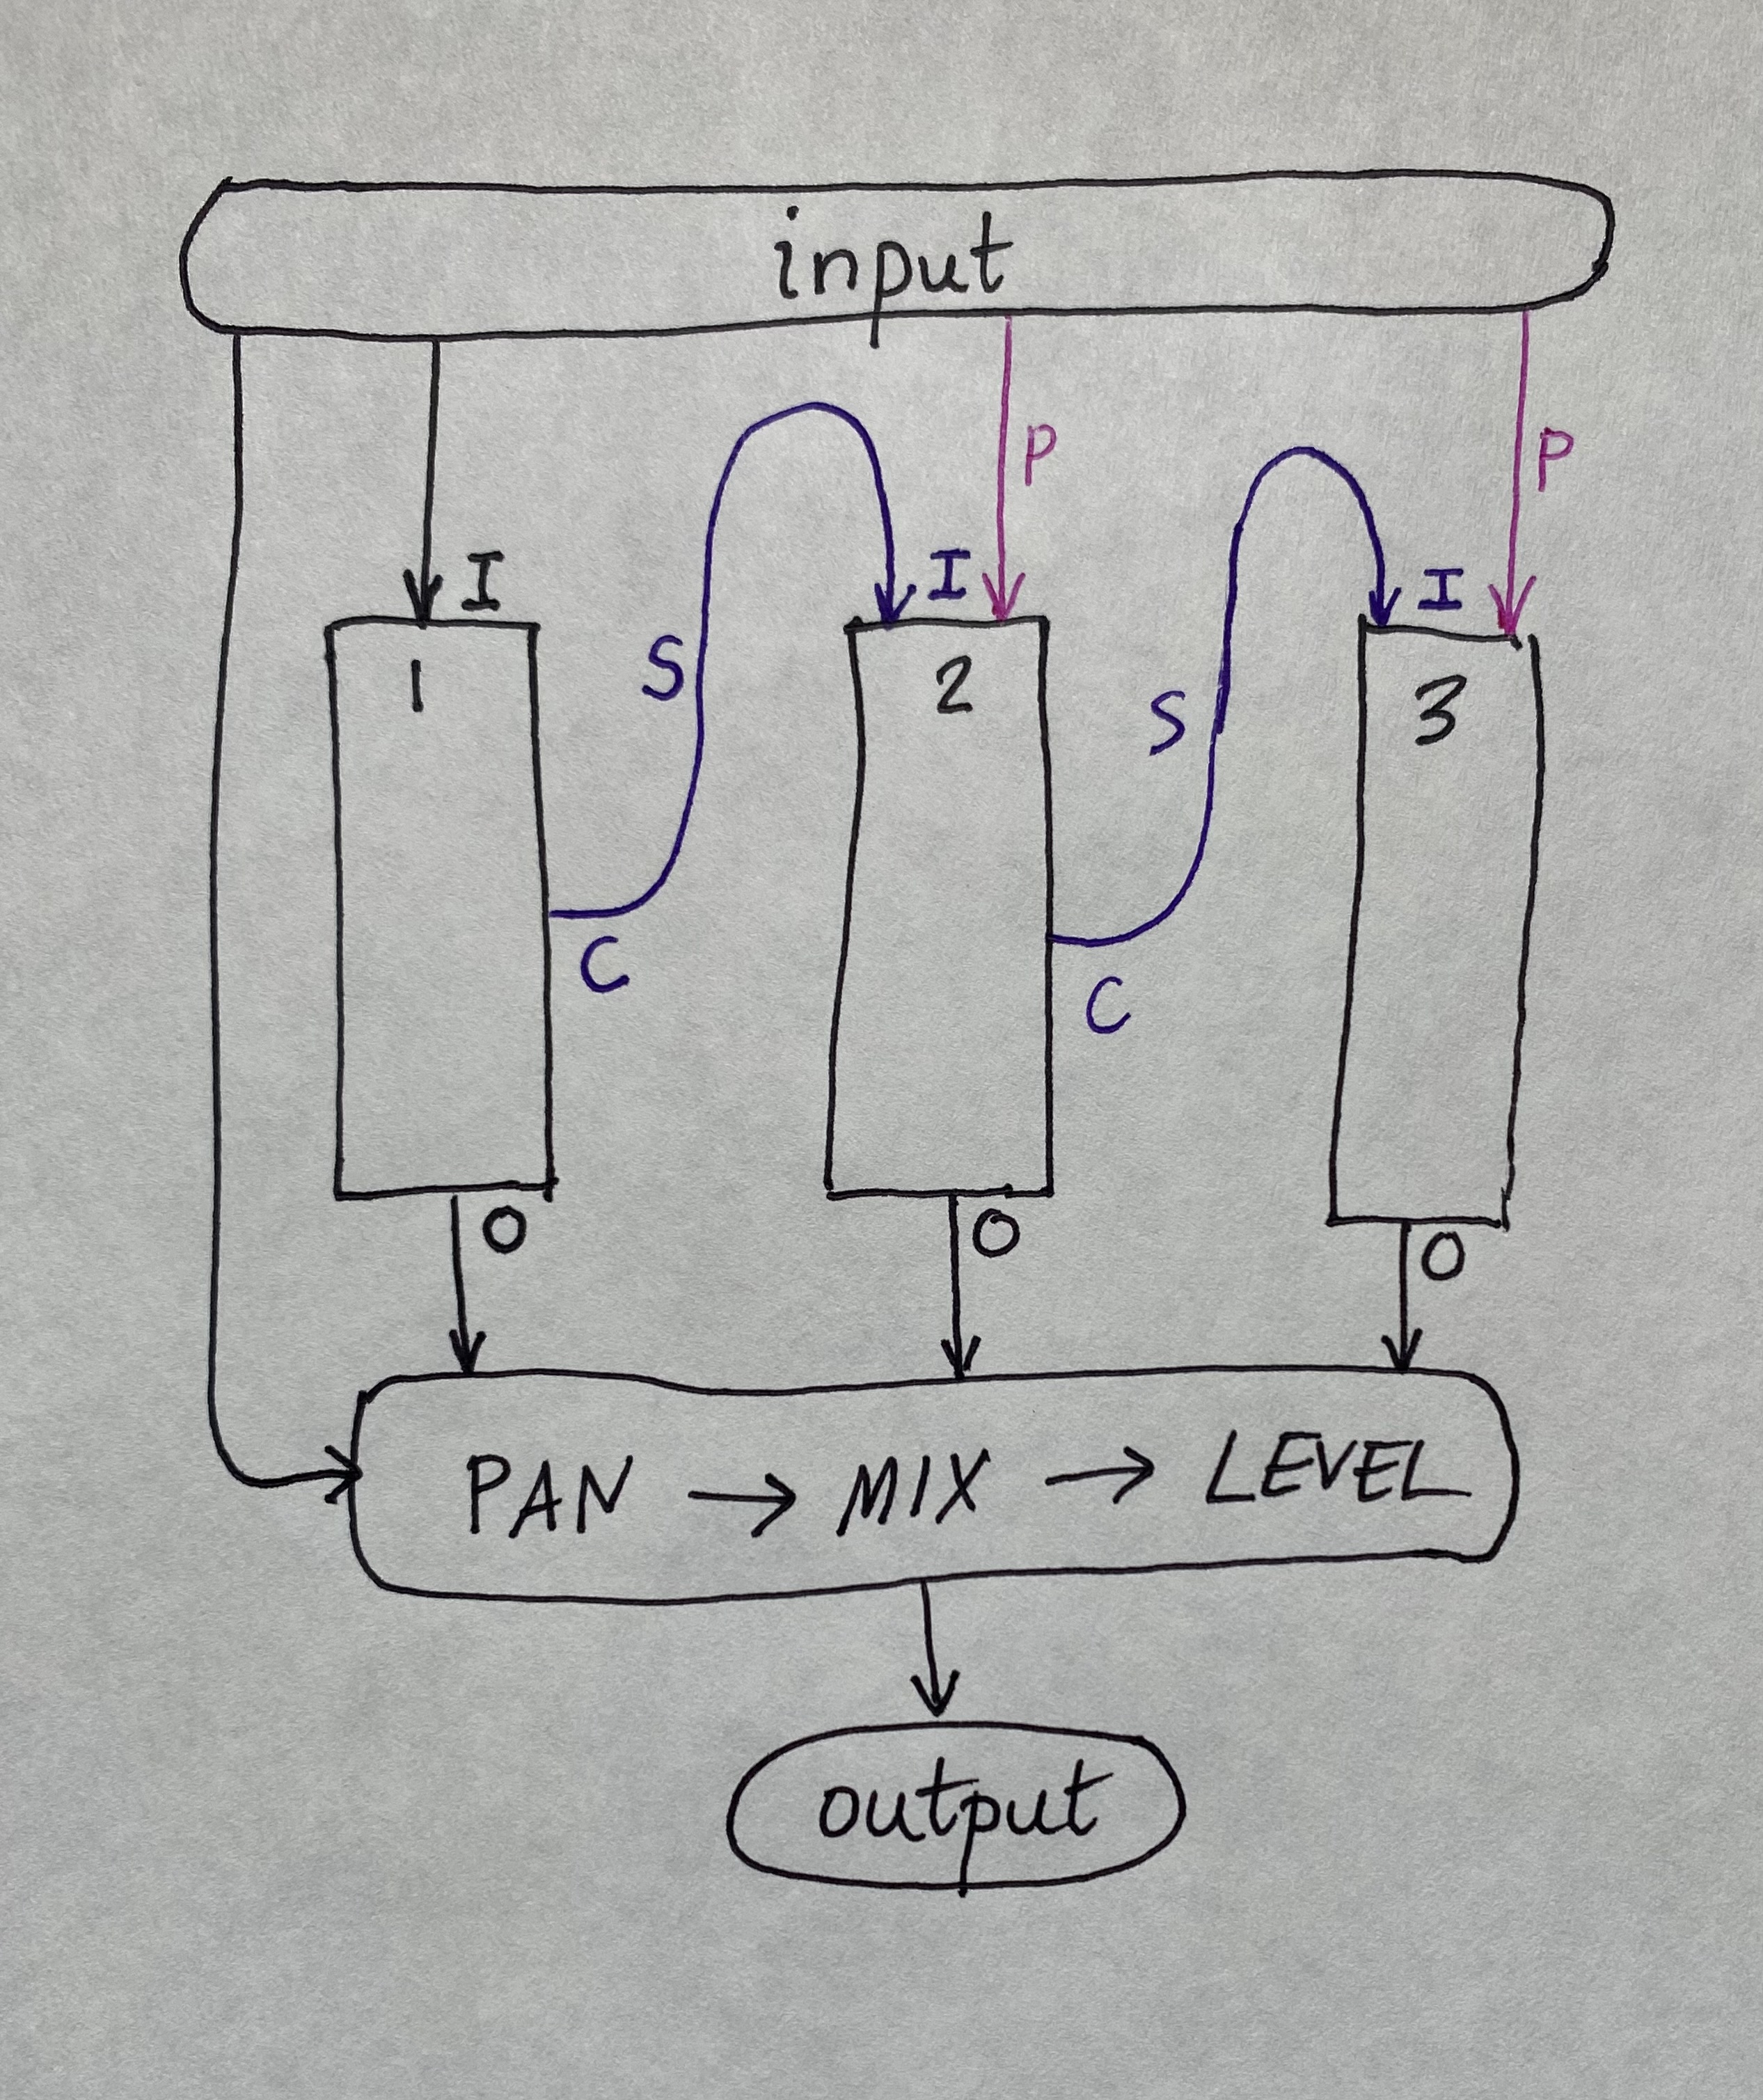 input
P
P
I
I
I
S
S
1
2
3
C
C
O
O
O
PAN → MIX → LEVEL
output